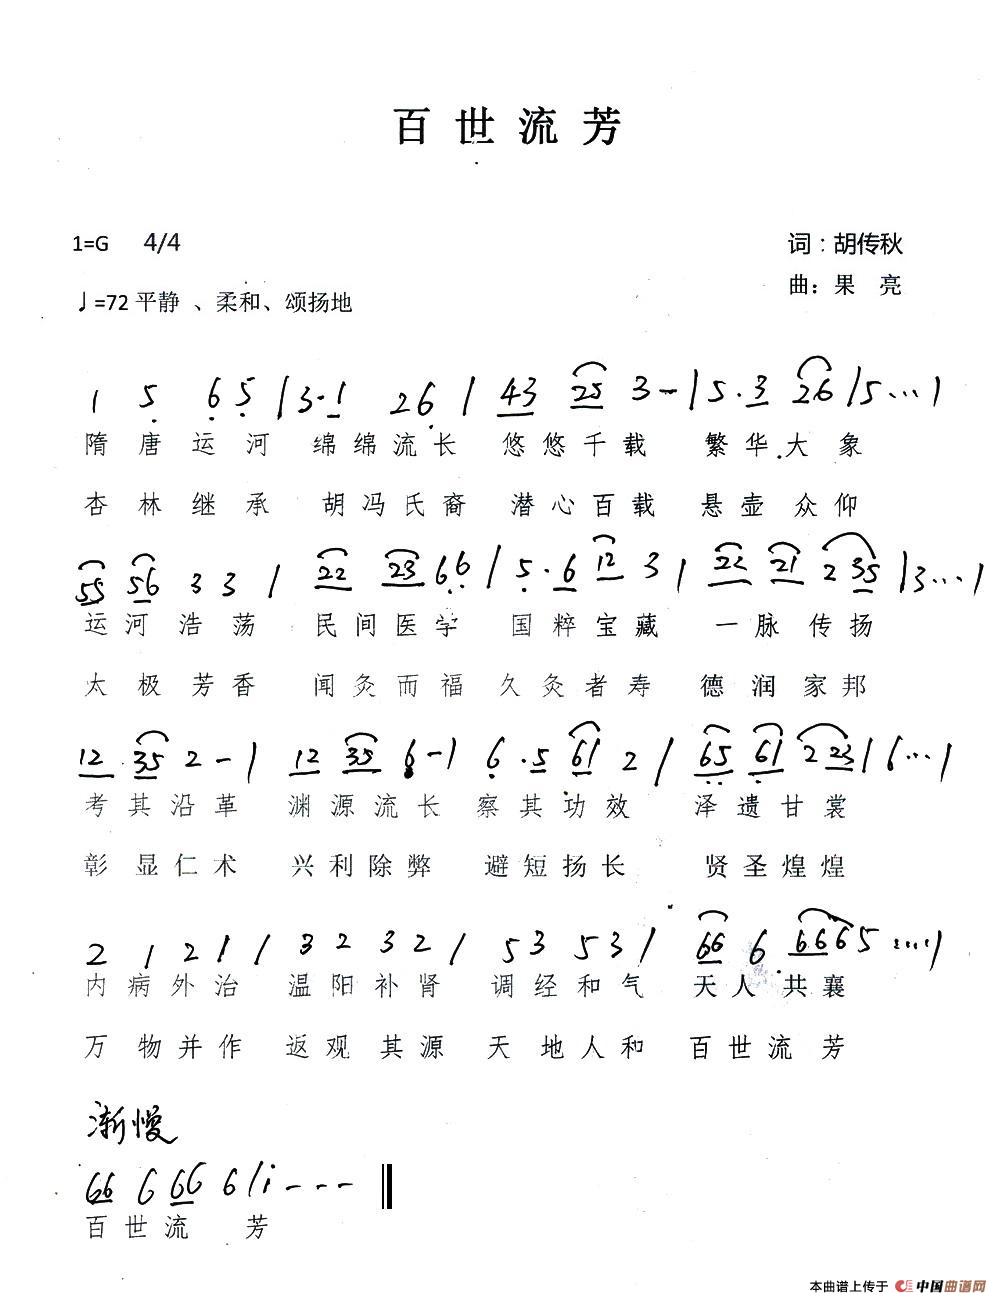 百世流芳
1=G 4/4 词:胡传秋
♩=72 平静 、柔和、颂扬地 曲: 果 亮
1 5 6 5 | 3·1 2 6 | 43 25 3 - | 5·3 26 | 5 ··· |
隋唐运河 绵绵流长 悠悠千载 繁华大象
杏林继承 胡冯氏裔 潜心百载 悬壶众仰
55 56 3 3 | 22 23 6 6 | 5·6 12 3 | 22 21 2 35 | 3 ··· |
运河浩荡 民间医学 国粹宝藏 一脉传扬
太极芳香 闻灸而福 久灸者寿 德润家邦
12 35 2 - | 12 35 6 - | 6·5 61 2 | 65 61 2 23 | 6 ··· |
考其沿革 渊源流长 察其功效 泽遗甘裳
彰显仁术 兴利除弊 避短扬长 贤圣煌煌
2 1 2 1 | 3 2 3 2 | 5 3 5 3 | 66 6 666 5 ···· |
内病外治 温阳补肾 调经和气 天人共襄
万物并作 返观其源 天地人和 百世流芳
渐慢
66 6 66 6 | i - - - ‖
百世流 芳
本曲谱上传于 中国曲谱网